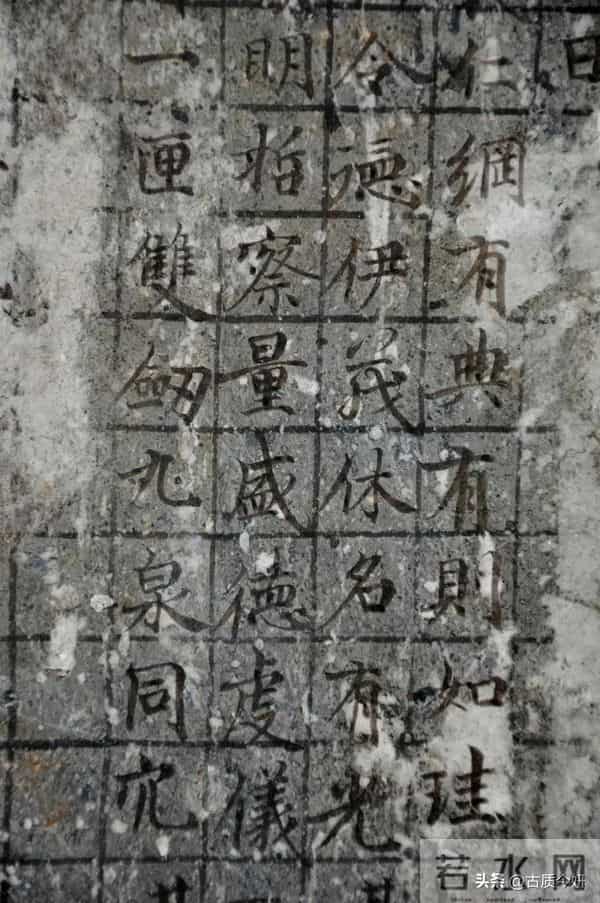 日
仁綱有典有則如珪
令德伊茂休名有光
明哲察量盛德虔儀
一匣雙劔九泉同穴
若水网
头条 @古质今妍